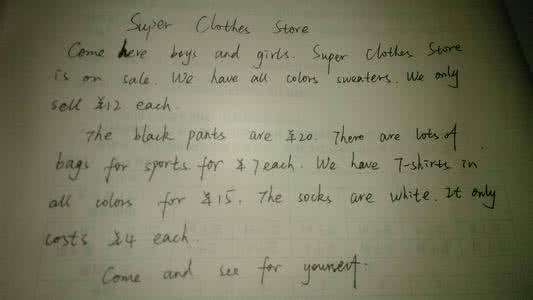 Super Clothes Store
Come here boys and girls. Super Clothes Store
is on sale. We have all colors sweaters. We only
sell ¥12 each.
The black pants are ¥20. There are lots of
bags for sports for ¥7 each. We have T-shirts in
all colors for ¥15. The socks are white. It only
costs ¥4 each.
Come and see for yourself.